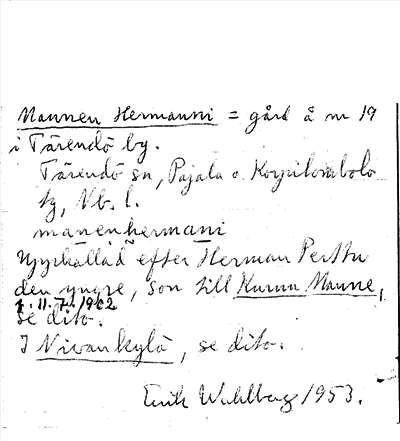 Mannen Hermanni = gård å nr 19
i Tärendö by.
Tärendö sn, Pajala o Korpilombolo
tg, Nb. l.
manenhermani
efter Herman Perttu
den yngre, son till Kurun Manne,
se dito.
I Nivankylä, se dito.
Erik Wahlberg 1953.